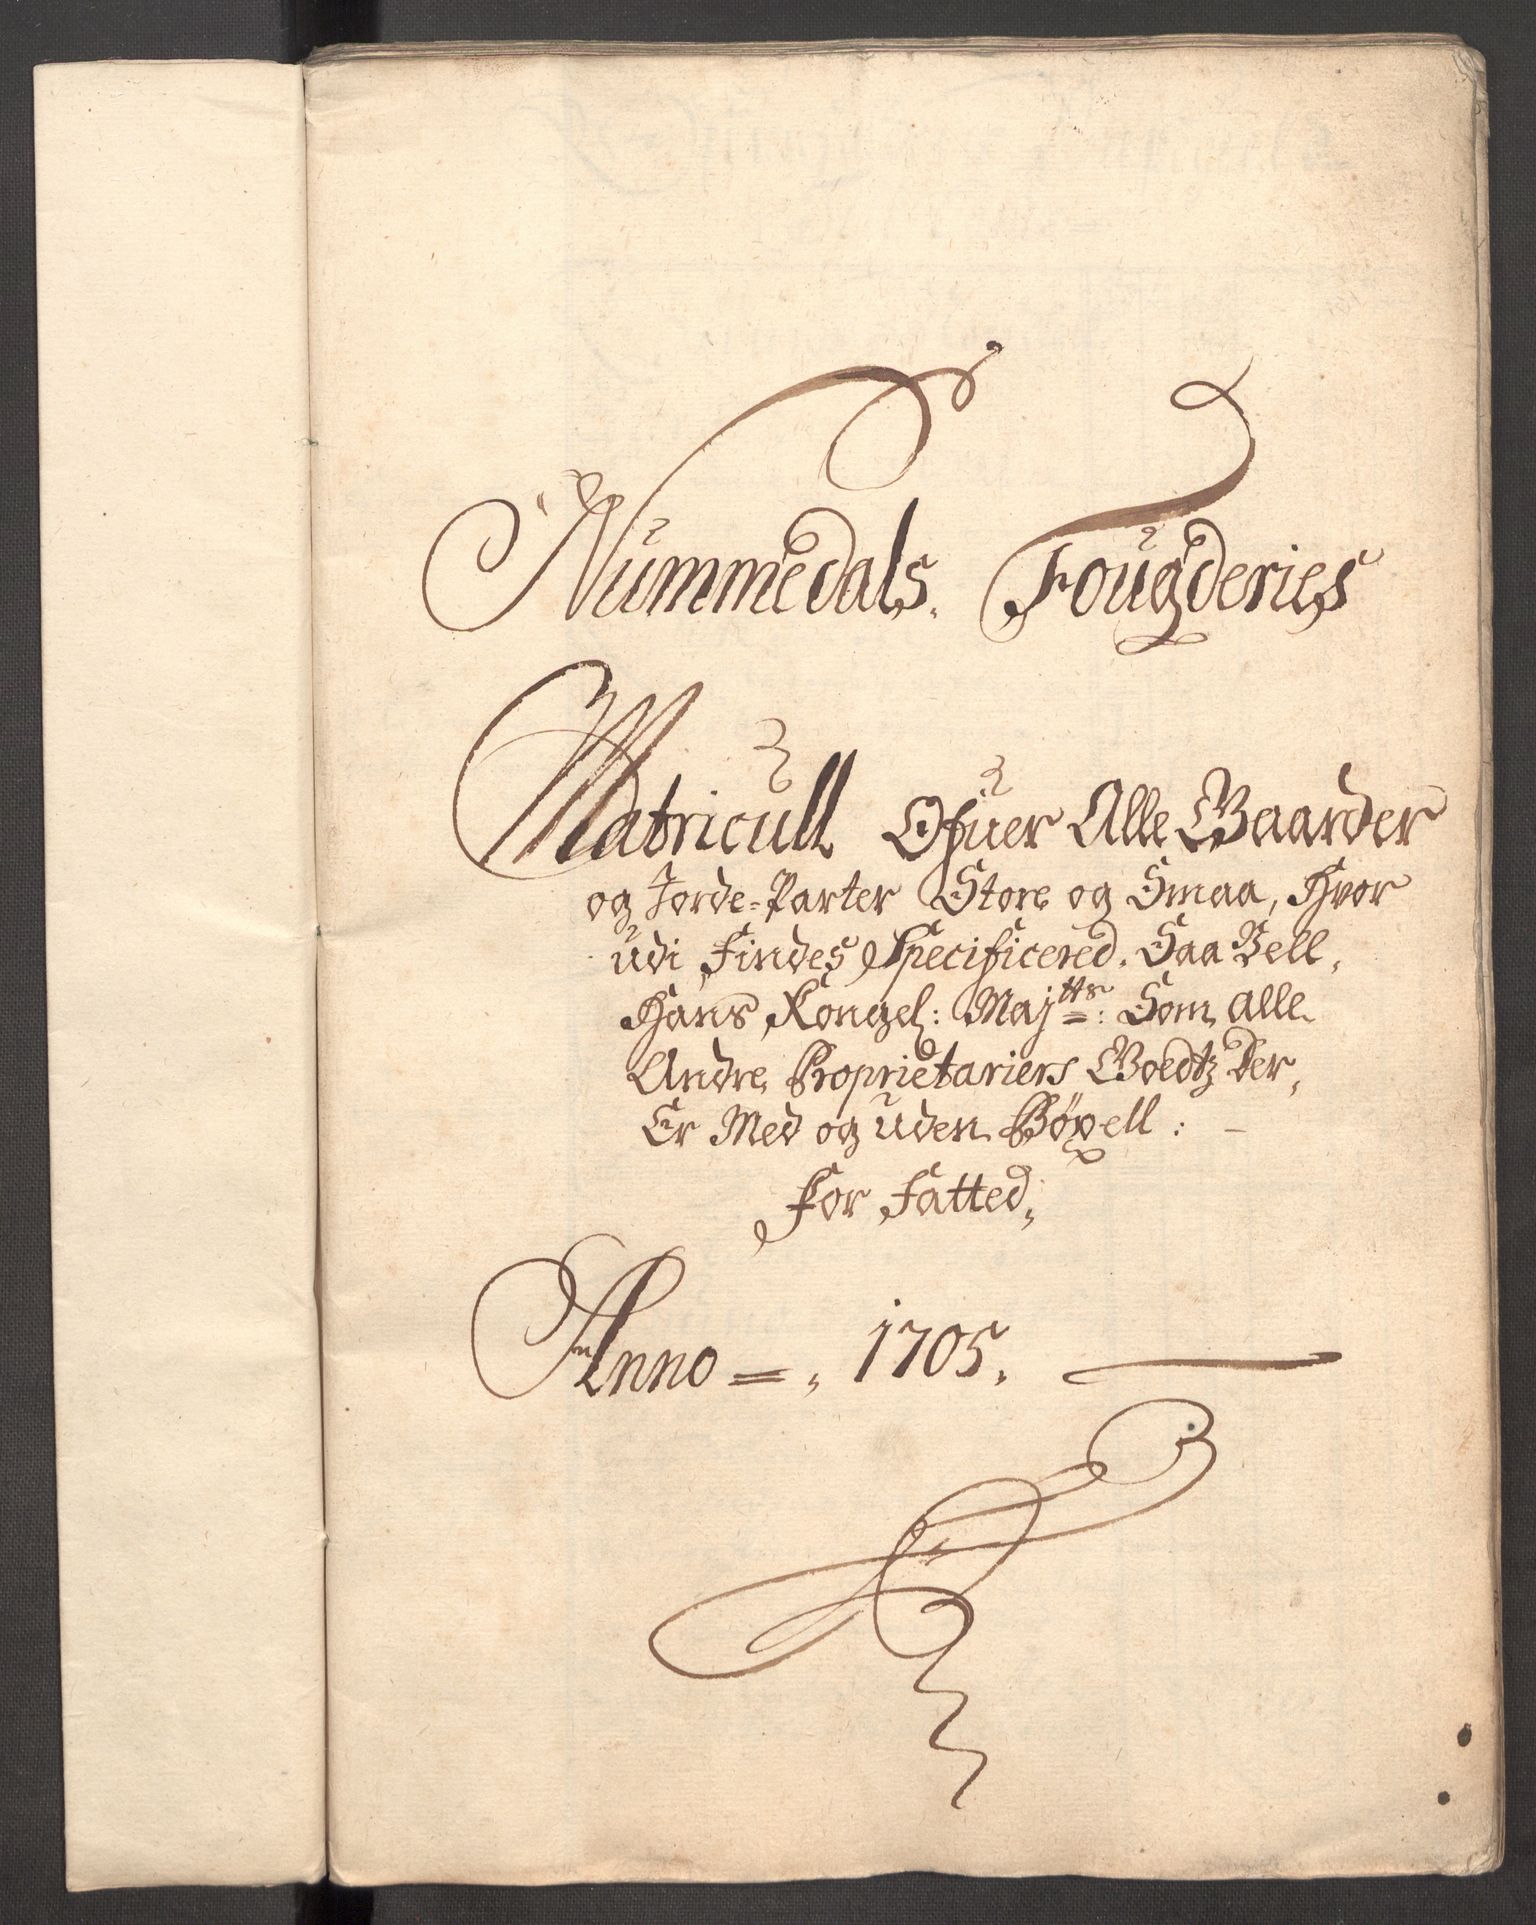 Nummedals. Fougderies
Matricull Ofuer Alle Gaarder
og Jorde=Parter Store og Smaa, Hvor
udi Findes Specificered. Saa Vell,
Hans Kongel: Maj^tts: Som Alle
Andre Proprietariers Goedtz Der,
Er Med og uden Böxell: -
For Fatted,
Anno =, 1705.